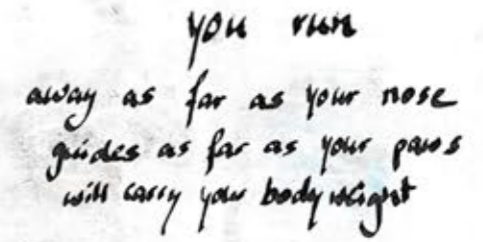 you run
away as far as your nose
guides as far as your paws
will carry your bodyweight